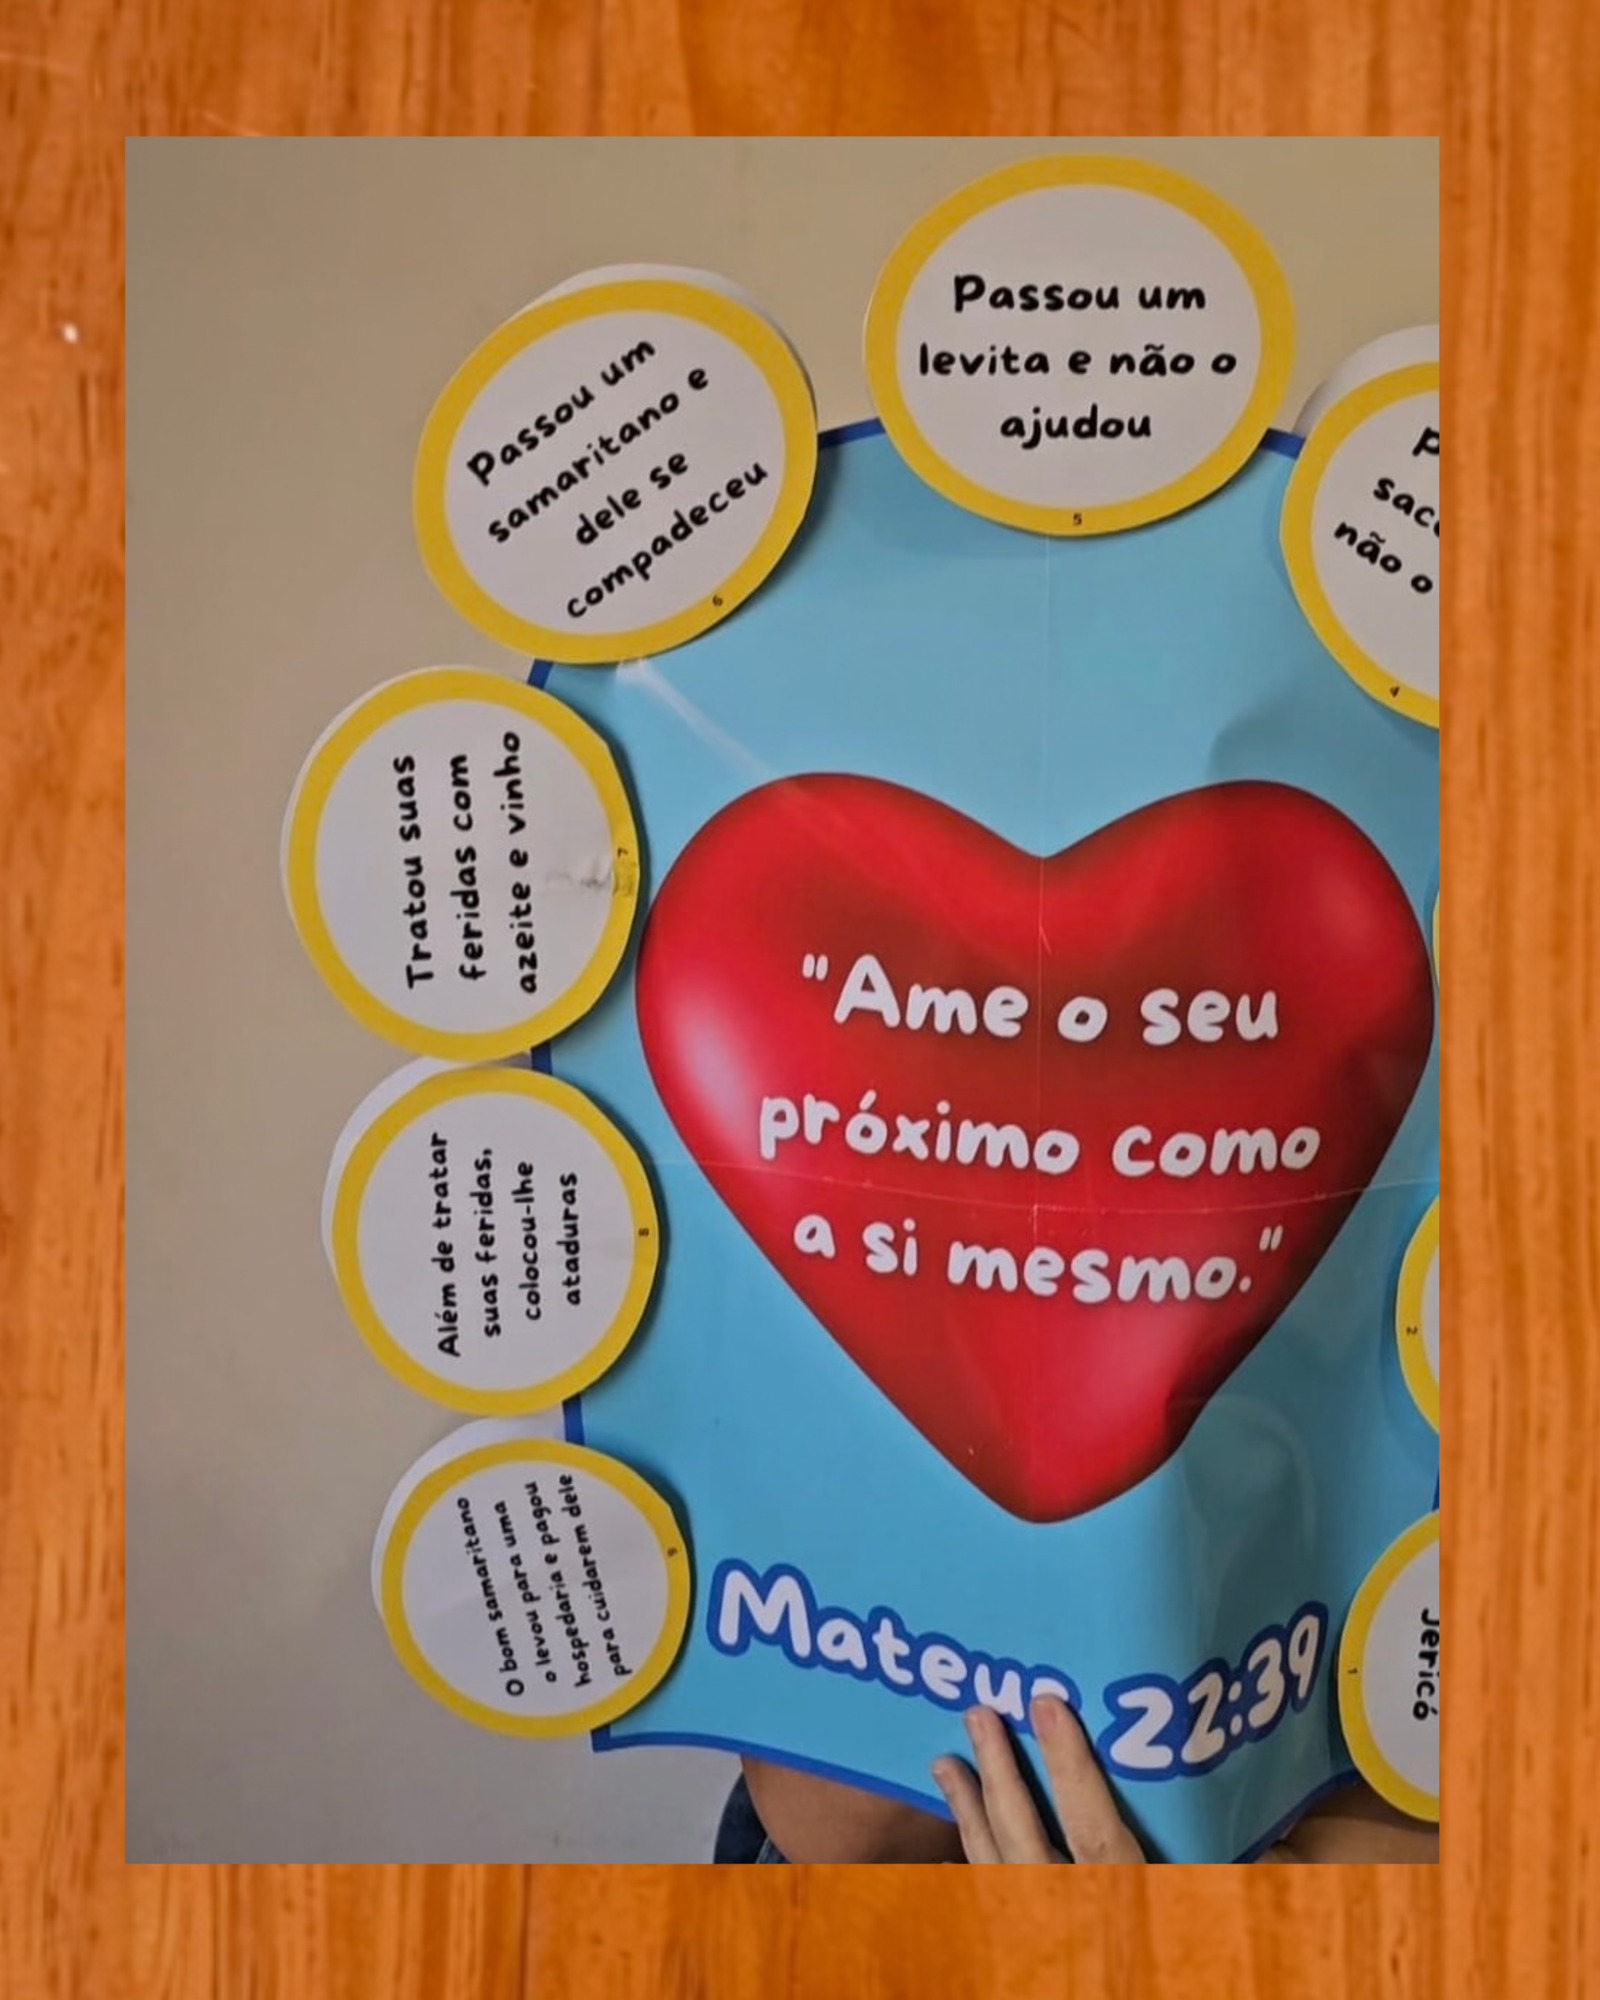 Passou um
levita e não o
ajudou
5
Passou um
samaritano e
dele se
compadeceu
6
não o
4
Tratou suas
feridas com
azeite e vinho
7
"Ame o seu
próximo como
a si mesmo."
Além de tratar
suas feridas,
colocou-lhe
ataduras
8
2
O bom samaritano
o levou para uma
hospedaria e pagou
para cuidarem dele
9
Mateus 22:39
Jericó
1